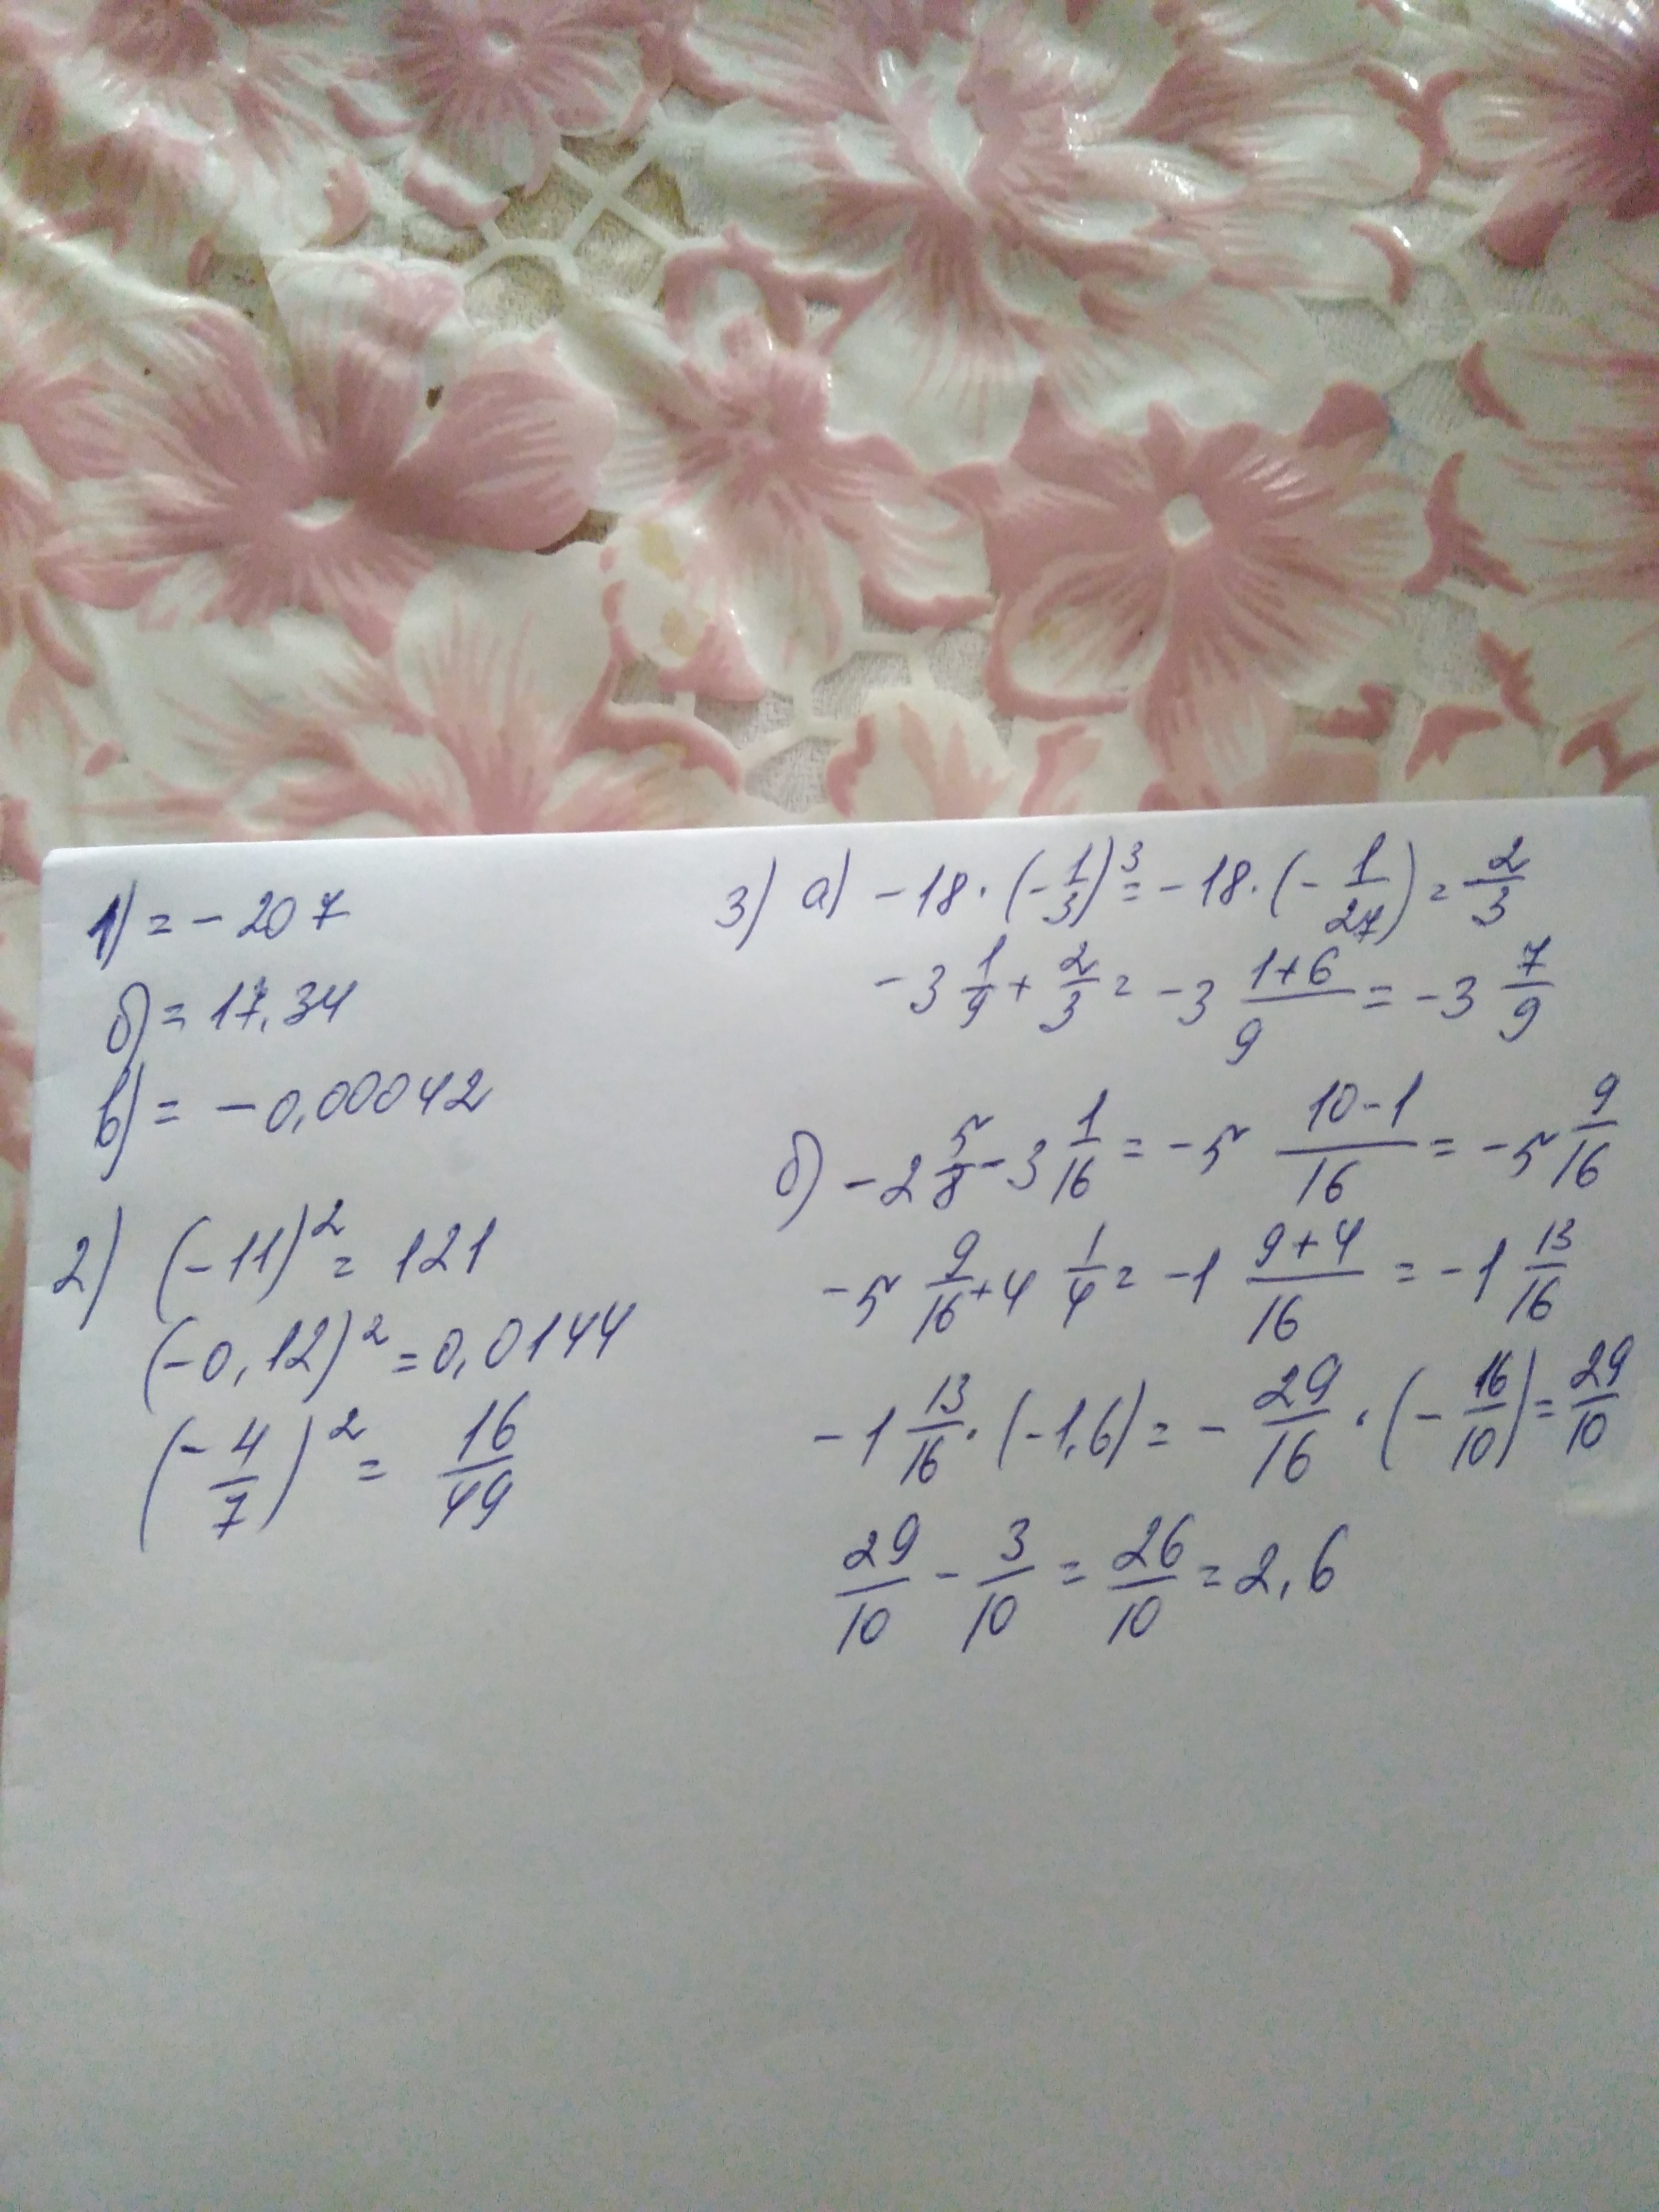 1) = - 207
б) = 17,34
в) = - 0,00042
2) (-11)² = 121
(-0,12)² = 0,0144
(-4/7)² = 16/49
3) а) -18 · (-1/3)³ = -18 · (-1/27) = 2/3
-3 1/9 + 2/3 = -3 (1+6)/9 = -3 7/9
б) -2 5/8 - 3 1/16 = -5 (10-1)/16 = -5 9/16
-5 9/16 + 4 1/4 = -1 (9+4)/16 = -1 13/16
-1 13/16 · (-1,6) = - 29/16 · (- 16/10) = 29/10
29/10 - 3/10 = 26/10 = 2,6